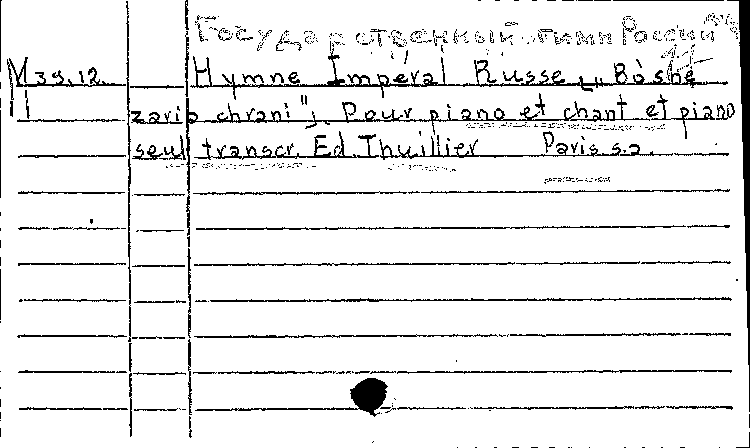 Государственный гимн России
M 39.12. Hymne Impéral Russe („Bóshe
zario chrani"). Pour piano et chant et piano
seul transcr. Ed. Thuillier Paris s.a.